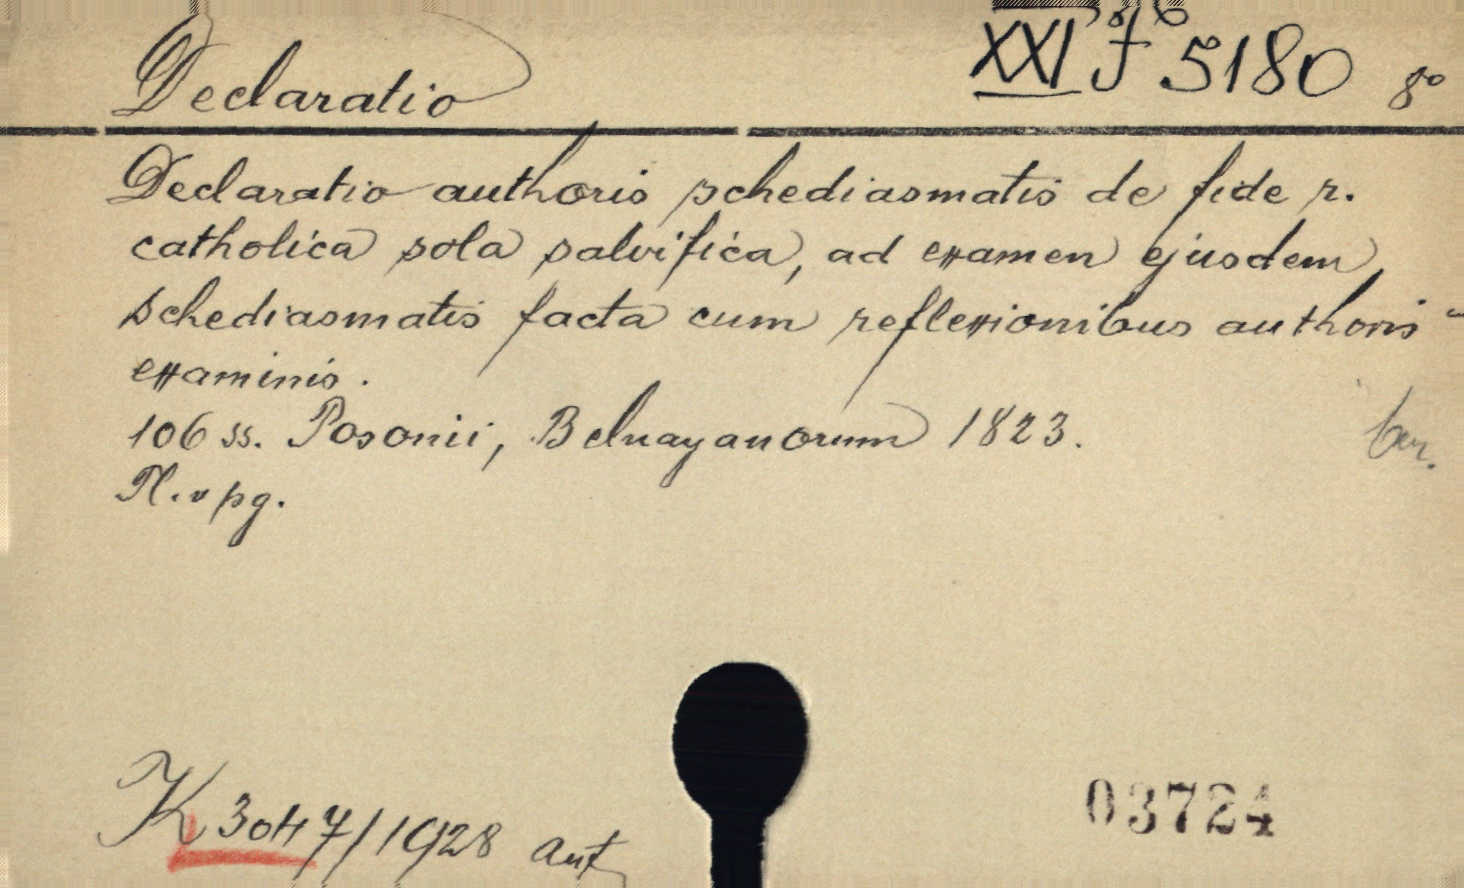 Declaratio
XXI J 5180 8°
Declaratio authoris schediasmatis de fide r.
catholica sola salvifica, ad examen ejusdem
schediasmatis facta cum reflexionibus authoris
examinis.
106 ss. Posonii, Belnayanorum 1823.
Pl. v pg.
K 3047/1928 ant
03724